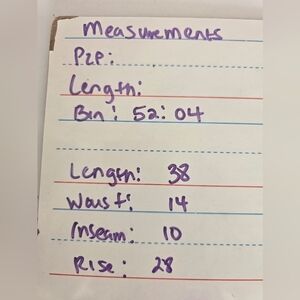 Measurements
P2P:
Length:
Bin: 52:04
Length: 38
Waist: 14
Inseam: 10
Rise: 28